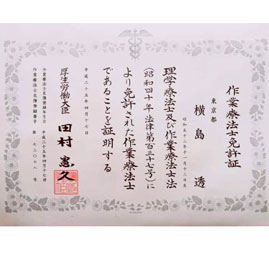 作業療法士免許証
東京都
横島 透
理学療法士及び作業療法士法
(昭和四十年 法律第百三十七号)に
より免許された作業療法士
であることを証明する
平成二十五年四月十七日
厚生労働大臣 田村憲久